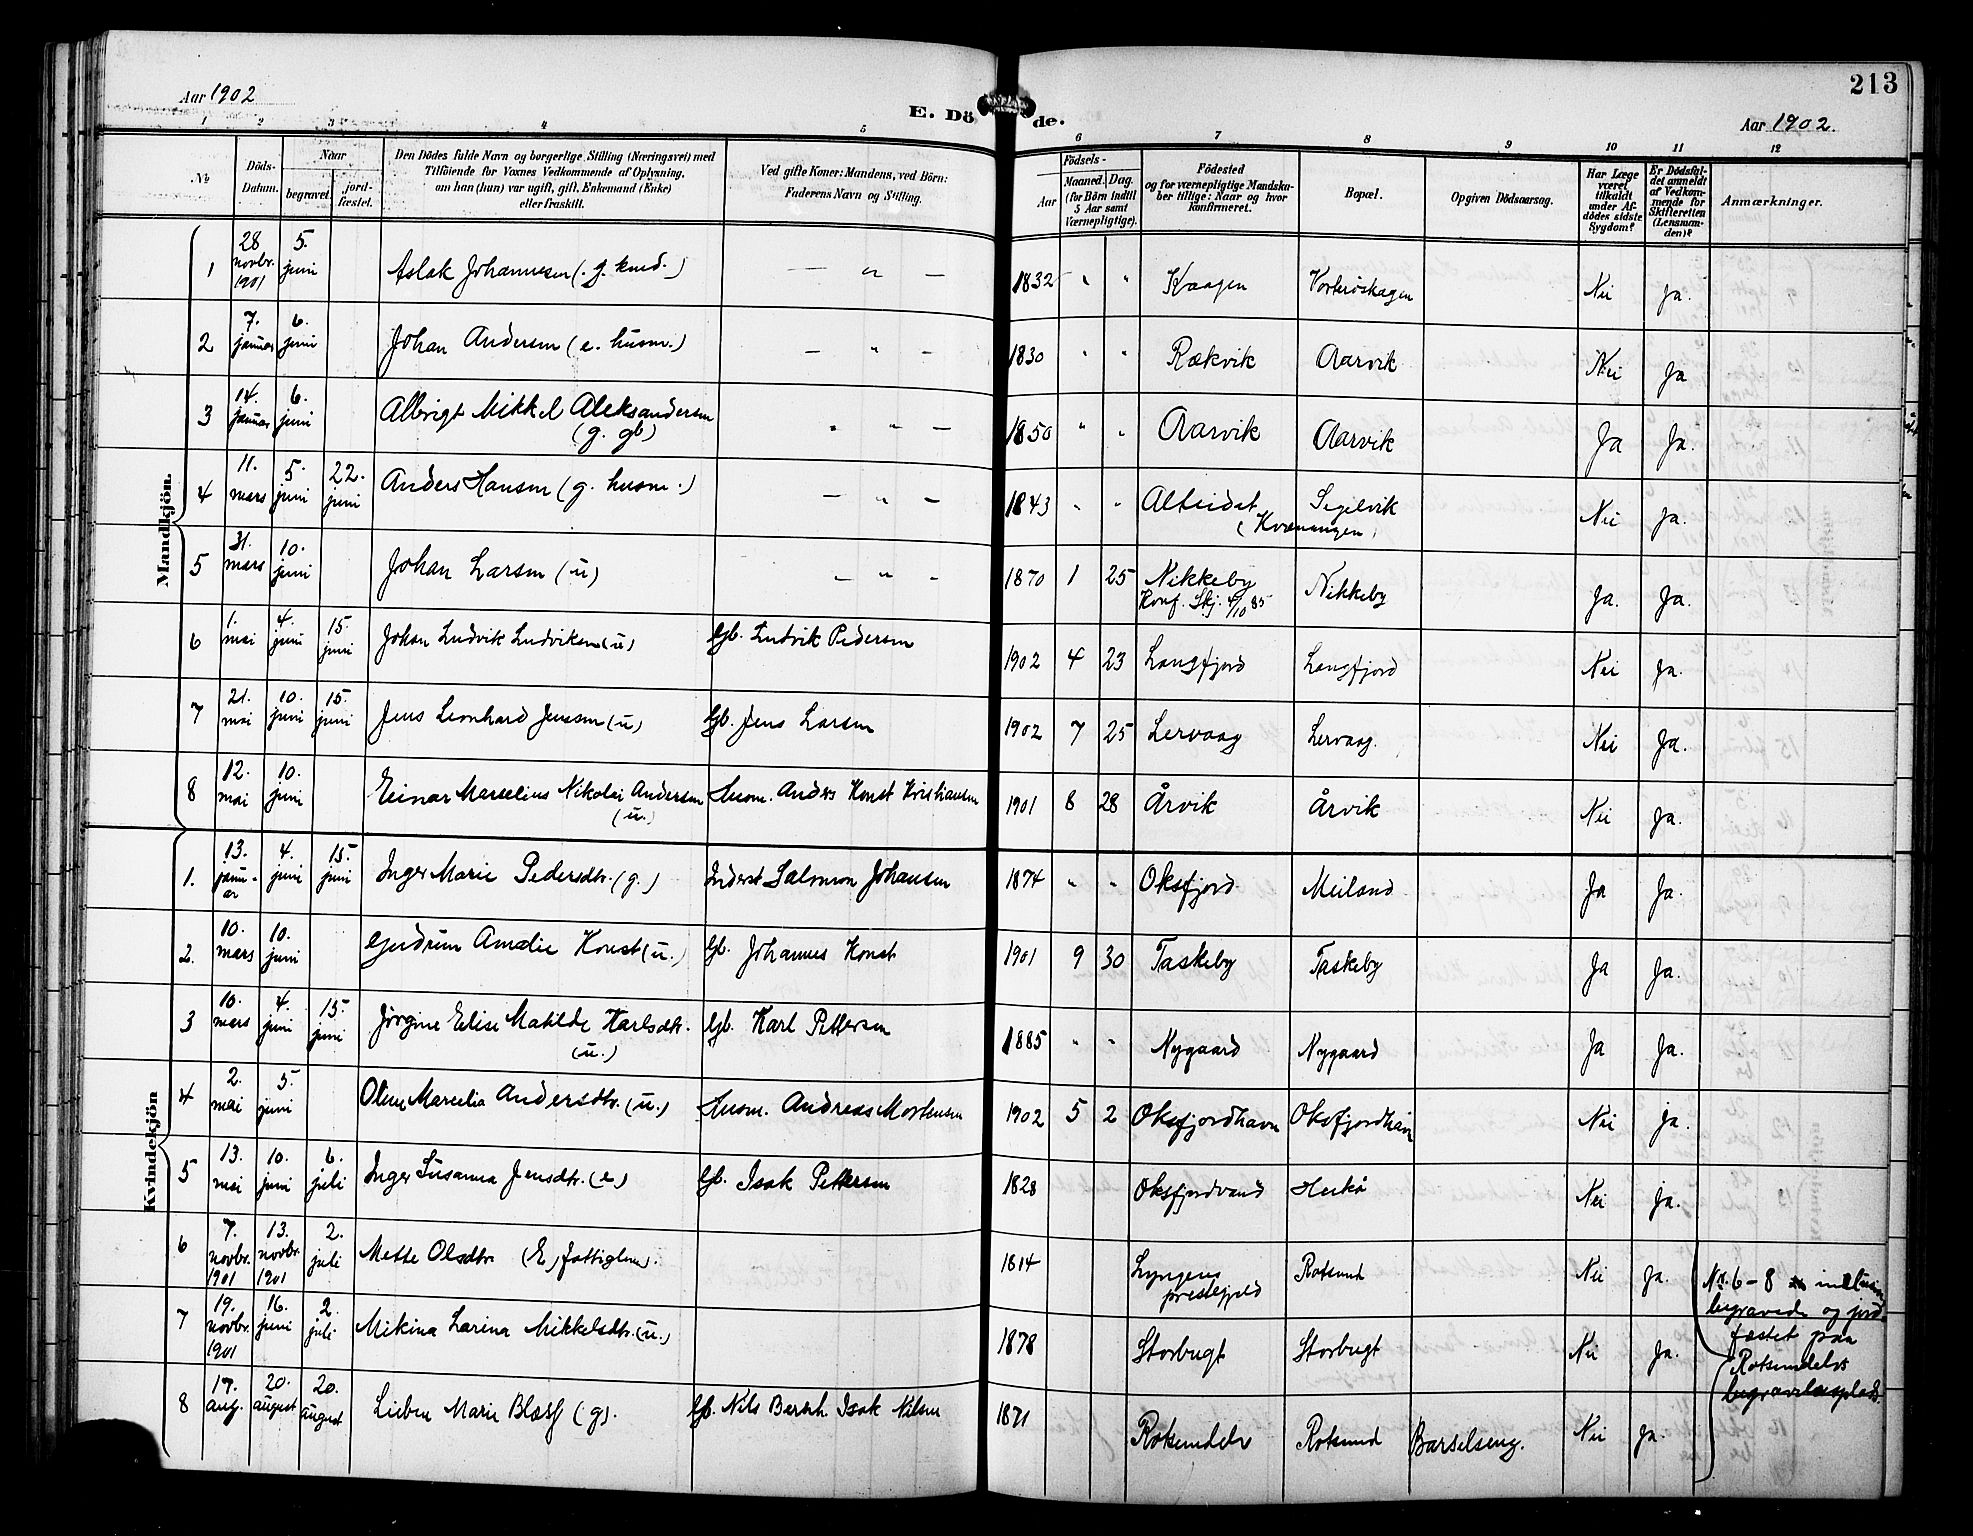 213
Aar 1902
E. Döde.
Aar 1902.
1 2 3 4 5 6 7 8 9 10 11 12
No
Döds-Datum.
Naar
begravet.
jord-fæstet.
Den Dödes fulde Navn og borgerlige Stilling (Næringsvei) med
Tilföiende for Voxnes Vedkommende af Oplysning,
om han (hun) var ugift, gift, Enkemand (Enke)
eller fraskilt.
Ved gifte Koner: Mandens, ved Börn:
Faderens Navn og Stilling.
Födsels-
Aar
Maaned. Dag.
(for Börn indtil
5 Aar samt
Værnepligtige).
Födested
og for værnepligtige Mandska-
ber tillige: Naar og hvor
konfirmeret.
Bopæl.
Opgiven Dödsaarsag.
Har Læge
været
tilkaldt
under Af-
dödes sidste
Sygdom?
Er Dödsfal-
det anmeldt
af Vedkom-
mende for
Skifteretten
(Lensman-
den)?
Anmærkninger.
Mandkjön.
1 28 novbr. 1901 5. juni Aslak Johannesen (. g. kmd.) — " — 1832 " " Kaagen Vorterøskagen Nei Ja.
2 7. januar 6. juni Johan Andersen (e. husm.) — " — 1830 " " Rækvik Aarvik Nei Ja
3 14. januar 6. juni Albrigt Mikkel Aleksandersen (g. gb) " " — 1850 " " Aarvik Aarvik Ja Ja.
4 11. mars 5. juni 22. juni Anders Hansen (g. husm.) — " — 1843 " " Alteidet (Kvænangen) Segelvik Nei Ja.
5 31. mars 10. juni Johan Larsen (u) — " — 1870 1 25 Nikkeby Konf. Skj. 4/10 85 Nikkeby Ja. Ja.
6 1. mai 4. juni 15. juni Johan Ludvik Ludviksen (u) Gb. Ludvik Pedersen 1902 4 23 Langfjord Langfjord Nei Ja.
7 21. mai 10. juni 15. juni Jens Leonhard Jensen (u) Gb. Jens Larsen 1902 7 25 Lervaag Lervaag. Nei Ja.
8 12. mai 10. juni Einar Marcelius Nikolai Andersen (u.) Husm. Anders Konst Kristiansen 1901 8 28 Årvik Årvik Nei Ja.
Kvindekjön
1. 13. janu-ar 4. juni 15. juni Inger Marie Pedersdtr. (g.) Inderst Salomon Johansen 1874 " " Oksfjord Meiland Ja Ja.
2. 10. mars 10. juni Gudrun Amalie Konst (u.) Gb. Johannes Konst 1901 9 30 Taskeby Taskeby Ja Ja.
3 10. mars 4. juni 15. juni Jørgine Elise Matilde Karlsdtr. (u.) Gb. Karl Pettersen 1885 " " Nygaard Nygaard Ja Ja.
4 2. mai 5. juni Oline Marcelia Andersdtr. (u.) Husm. Andreas Mortensen 1902 5 2 Oksfjordhavn Oksfjordhavn Nei ja.
5 13. mai 10. juni 6. juli Inger Susanna Jensdtr. (e) Gb. Isak Pettersen 1828 Oksfjordvand Hukø Nei ja.
6 7. novbr. 1901 13. novbr. 1901 2. juli Mette Olsdtr. (E) fattiglem. 1814 Lyngens prestegjeld Rotsund Nei Ja.
7 19. novbr. 1901 16. juni 2. juli Mikina Larina Mikkelsdtr. (u.) 1878 Storbugt Storbugt Nei Ja.
8 17. aug. 20. august 20. august Lisben Marie Blæsg (g). Gb. Nils Bersh. Isak Nilsen 1871 Rotsundelv Rotsund Barselseng. Nei Ja.
Nr. 6-8 inclusive
begravede og jord-
fæstet paa
Rotsundelvs
begravelsesplads.